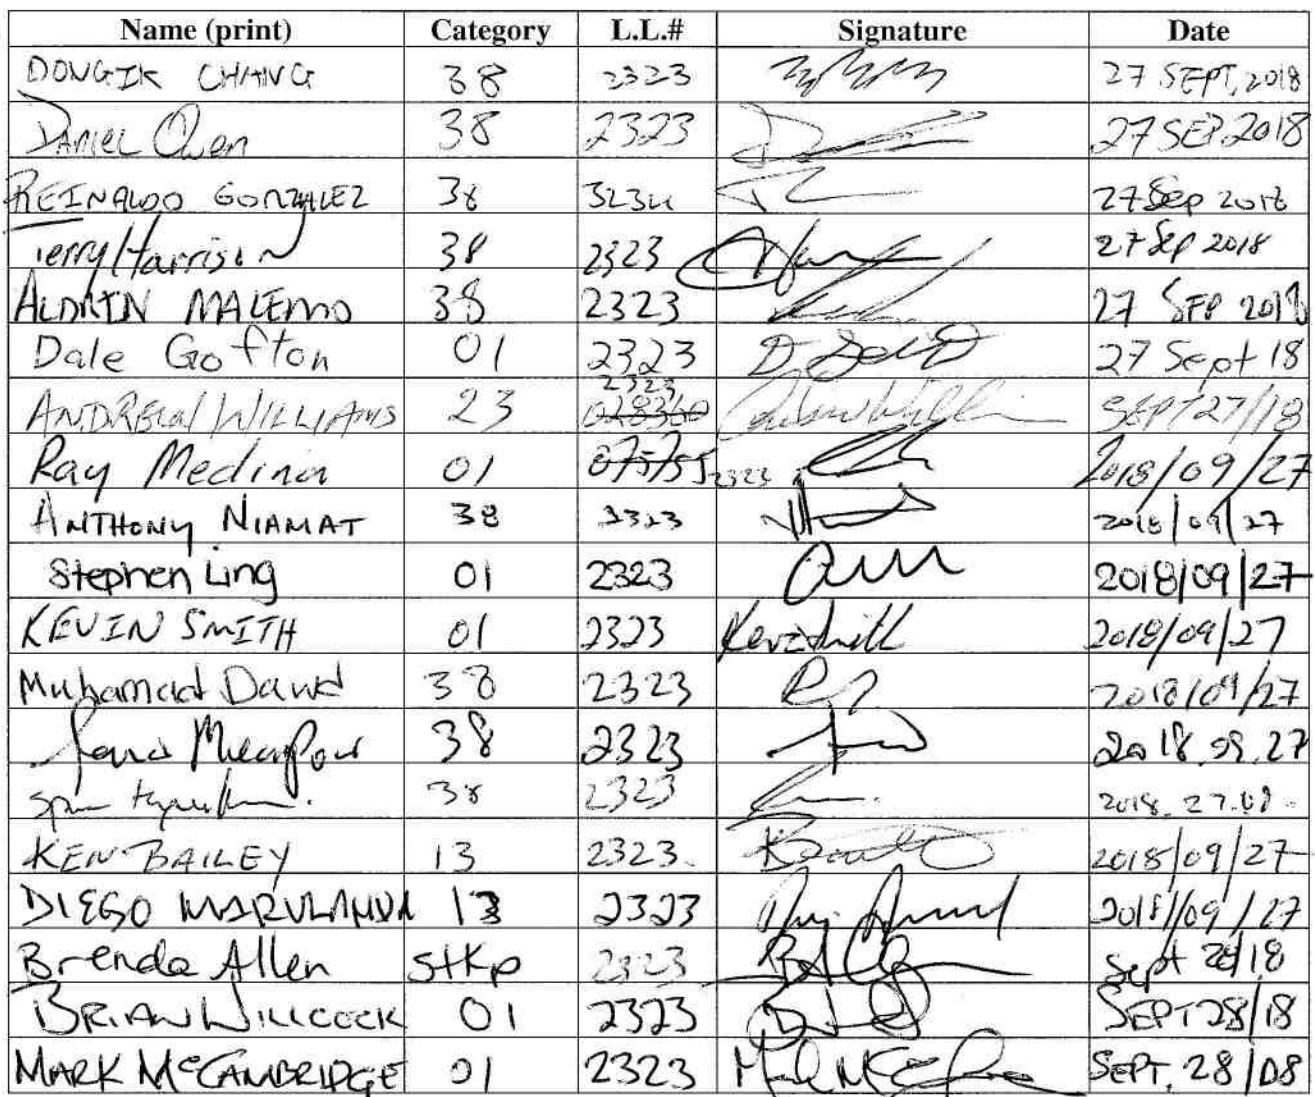 Name (print) Category L.L.# Signature Date
DONGIK CHANG 38 2323 27 SEPT, 2018
DANIEL Owen 38 2323 27 SEP 2018
REINALDO GONZALEZ 38 27 Sep 2018
Terry Harrison 38 2323 27 Sep 2018
ALDRIN MALEMO 38 2323 27 SEP 2018
Dale Gofton 01 2323 27 Sept 18
2323
ANDREW WILLIAMS 23 028360 SEPT 27/18
Ray Medina 01 075755 2323 2018/09/27
ANTHONY NIAMAT 38 2323 2018/09/27
Stephen Ling 01 2323 2018/09/27
KEVIN SMITH 01 2323 Kevin Smith 2018/09/27
Muhamad Dawd 38 2323 2018/09/27
38 2323 2018.09.27
38 2323 2018.27.09
KEN BAILEY 13 2323 2018/09/27
DIEGO MARULANDA 13 2323 2018/09/27
Brenda Allen stkp 2323 Sept 28/18
BRIAN WILLCOCK 01 2323 SEPT 28/18
MARK McCAMBRIDGE 01 2323 SEPT. 28/08